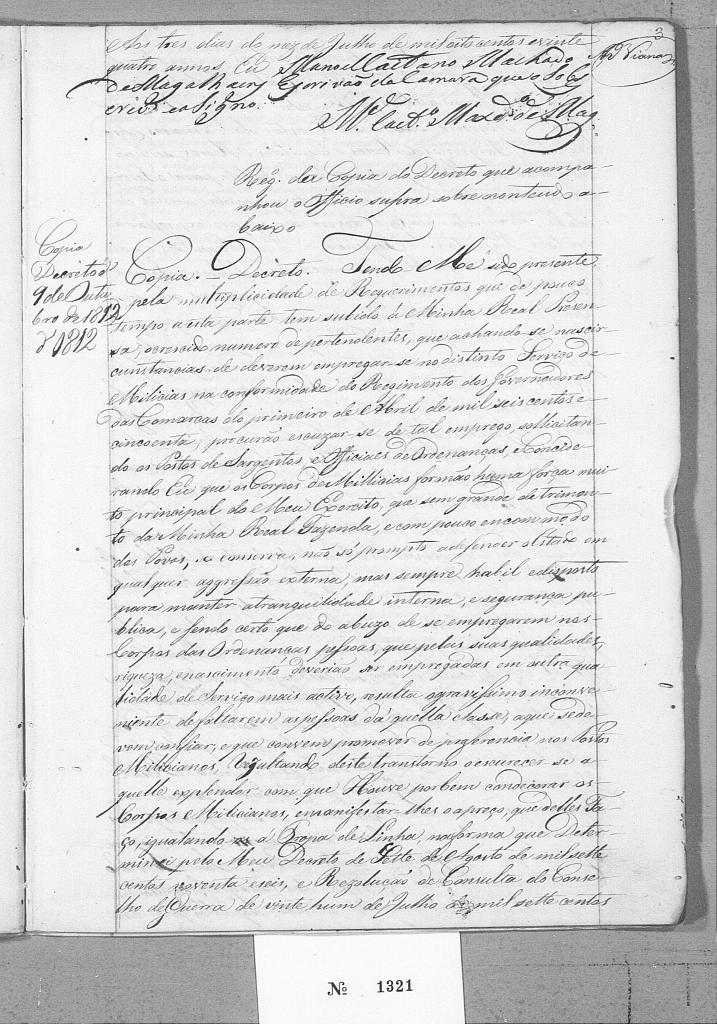 3
Aos tres dias do mez de Julho de mil oito centos e vinte
quatro annos, Eu Manoel Caetano Machado
De Magalhaens Escrivão da Camara que o sobes
crevi e asigno.
M.el Caet.o Maxd.o de Mag.
Viana
Reg.o da Copia do Decreto que acompa
nhou o Officio supra sobre o contendo a-
baixo
Copia
Decreto de
9 de Outu
bro de 1812
d' 1812
Copia. = Decreto. Tendo Me sido presente,
pela multiplicidade de Requerimentos que de pouco
tempo a esta parte tem subido á Minha Real Presen-
sa, o crescido numero de pertendentes, que achando-se nas cir-
cunstancias de deverem empregar-se no distinto Serviço de
Milicias na conformidade do Regimento dos Governadores
das Comarcas do primeiro de Abril de mil seis centos e
cincoenta, procurão escuzar-se de tal emprego, sollicitan-
do os Postos de Sargentos e Officiaes de Ordenanças, e Concide-
rando Eu que os Corpos de Millicias formão huma força mui-
to principal do Meu Exercito, que sem grande detrimen-
to da Minha Real Fazenda, e com pouco encommodo
dos Povos, se conserva, não só prompto a defender o Estado em
qualquer aggressão externa, mas sempre habil e disposto
para manter a tranquilidade interna, e segurança pu-
blica, e sendo certo que do abuzo de se empregarem nos
Corpos das Ordenanças pessoas, que pelas suas qualidades,
riqueza, e nascimento deverião ser empregadas em outra qua-
lidade de Serviço mais activo, resulta o gravissimo inconve-
niente de faltarem as pessoas da quella classe, a que se de-
vem confiar, e que convem promover de preferencia nos Postos
Milicianos, Rezultando deste transtorno o escurecer-se a-
quelle explendor com que Houve por bem condecorar os
Corpos Milicianos, e manifestar-lhes o apreço, que delles Fa-
ço, igualando á Tropa de Linha, na forma que Deter-
minei pelo Meu Decreto de Sette de Agosto de mil sette
centos noventa e seis, e Rezolução de Consulta do Conse-
lho de Guerra de vinte hum de Julho de mil sette centos
Nº 1321